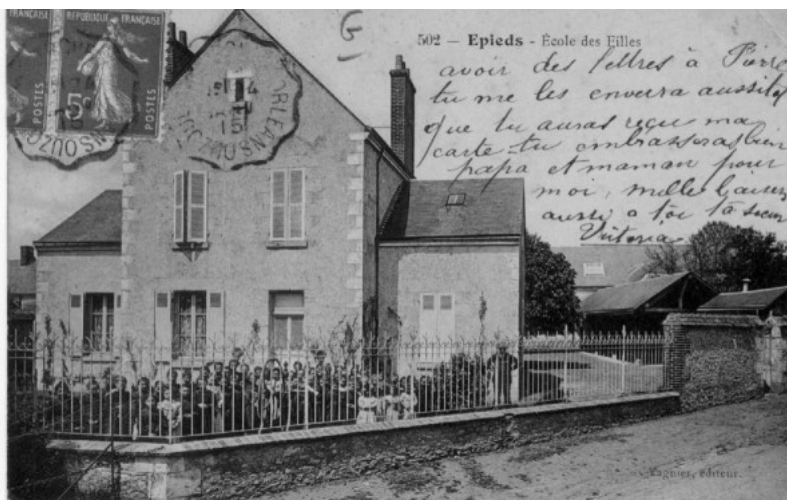 FRANÇAISE
RÉPUBLIQUE FRANÇAISE
POSTES
5
POSTES
ORLEANS
OUZOU
502 — Epieds - École des Filles
avoir des lettres à Pierre
tu me les enverra aussitôt
que tu auras reçu ma
carte tu embrasseras bien
papa et maman pour
moi, mille baisers
aussi a toi ta sœur
Victoria
Vagnier, éditeur.